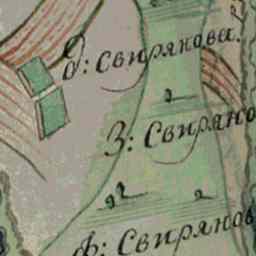 д: Свирянова.
З: Свиряно
ф: Свирянов